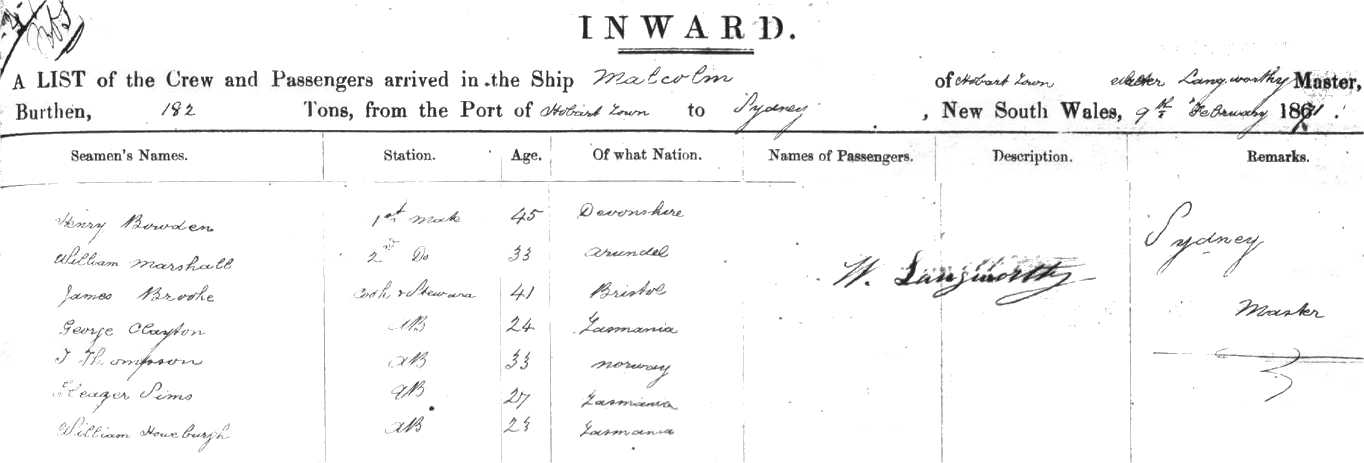 INWARD.
A LIST of the Crew and Passengers arrived in the Ship Malcolm of Hobart Town Langworthy Master,
Burthen, 182 Tons, from the Port of Hobart Town to Sydney, New South Wales, 9th February 1871.
Seamen's Names. Station. Age. Of what Nation. Names of Passengers. Description. Remarks.
Henry Bowden 1st Mate 45 Devonshire Sydney
William Marshall 2nd Do 33 Arundel W. Langworthy
James Brooke Cook & Steward 41 Bristol Master
George Clayton AB 24 Tasmania
J Thompson AB 33 Norway
Sims AB 27 Tasmania
William AB 23 Tasmania